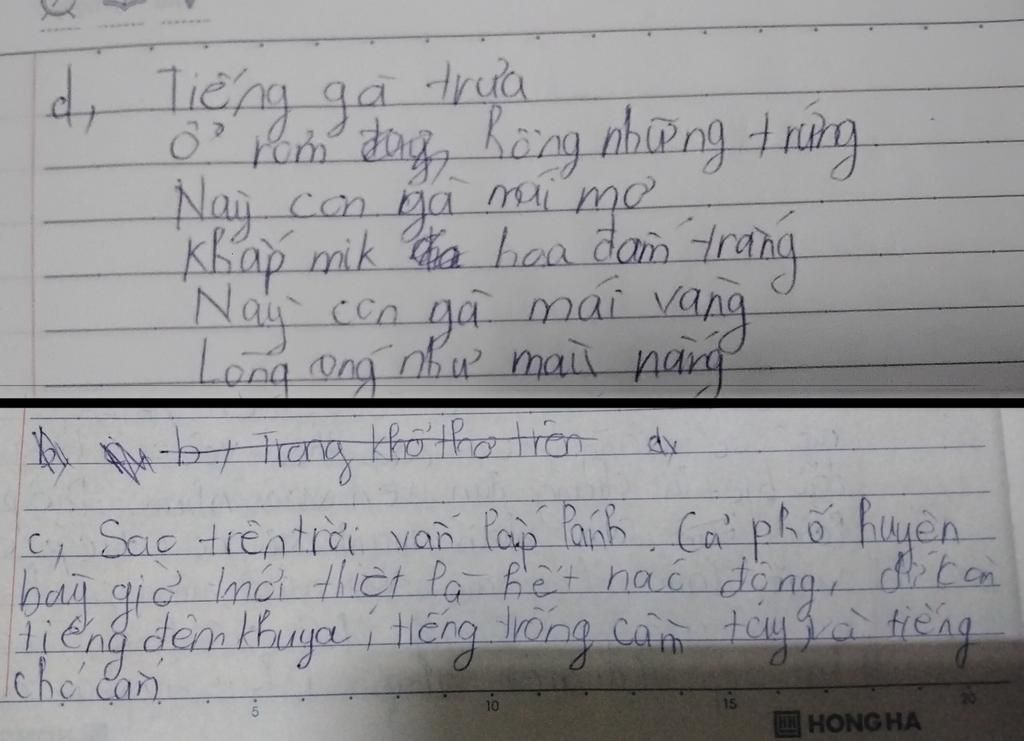 d, Tiếng gà trưa
Ổ rơm đag, hồng những trứng
Này con gà mái mơ
Khắp mik hoa đốm trắng
Này con gà mái vàng
Lông óng như màu nắng
b, Trong khổ thơ trên
c, Sao trên trời vẫn lấp lánh. Cả phố huyện
bây giờ mới thiệt là hết náo động,
tiếng đêm khuya, tiếng trống cầm tay, và tiếng
chó cắn
5 10 15 20
HONG HA